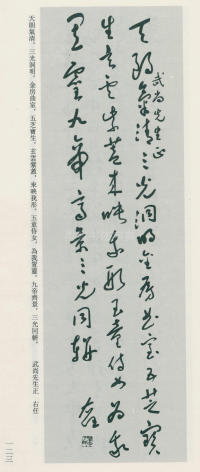 武尚先生正
天朗氣清三光洞明金房曲室五芝寶
生玄雲紫蓋來映我形玉童侍女為我
置靈九帝齊景三光同軿 右任
天朗氣清,三光洞明,金房曲室,五芝寶生,玄雲紫蓋,來映我形,五童侍女,為我置靈,九帝齊景,三光同軿。 武尚先生正 右任
一二三